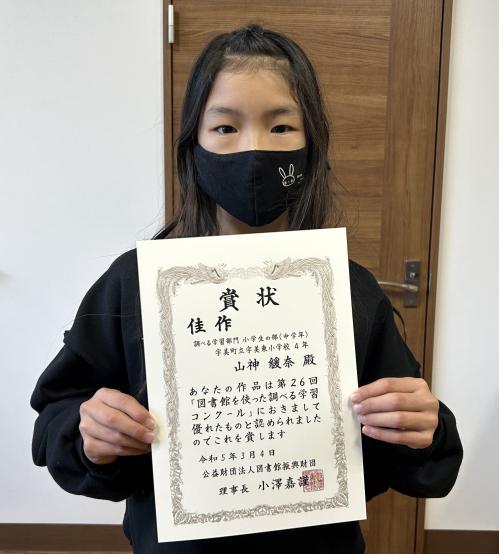 賞状
佳作
調べる学習部門 小学生の部(中学年)
宇美町立宇美東小学校 4年
山神 緩奈 殿
あなたの作品は第26回
「図書館を使った調べる学習
コンクール」におきまして
優れたものと認められました
のでこれを賞します
令和5年3月4日
公益財団法人図書館振興財団
理事長 小澤嘉謹